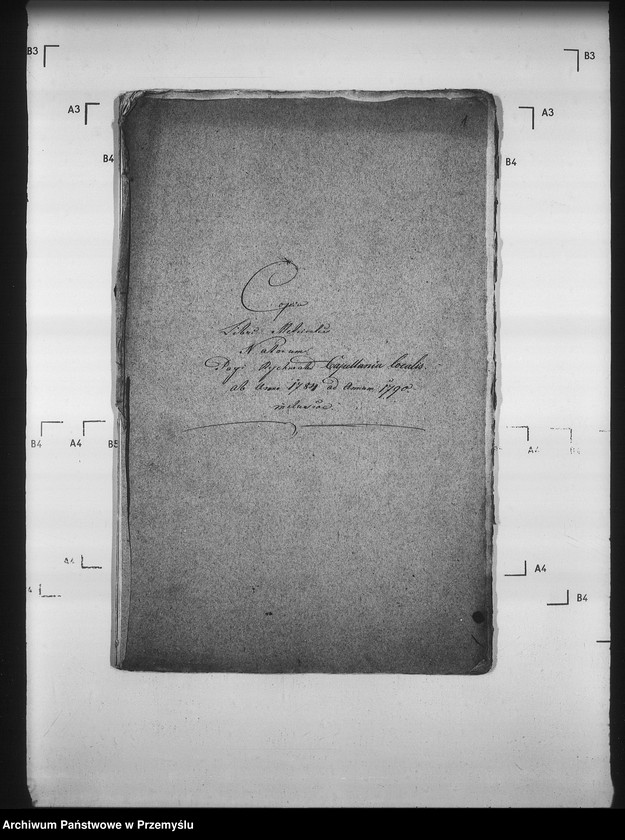 B3
B3
A3
A3
B4
B4
1
Copia
Libri Metricalis
Natorum
Pagi Capellania localis.
ab Anno 1784 ad Annum 1790
inclusive
B4
A4
B5
A4
B4
A4
A4
4
B4
Archiwum Państwowe w Przemyślu